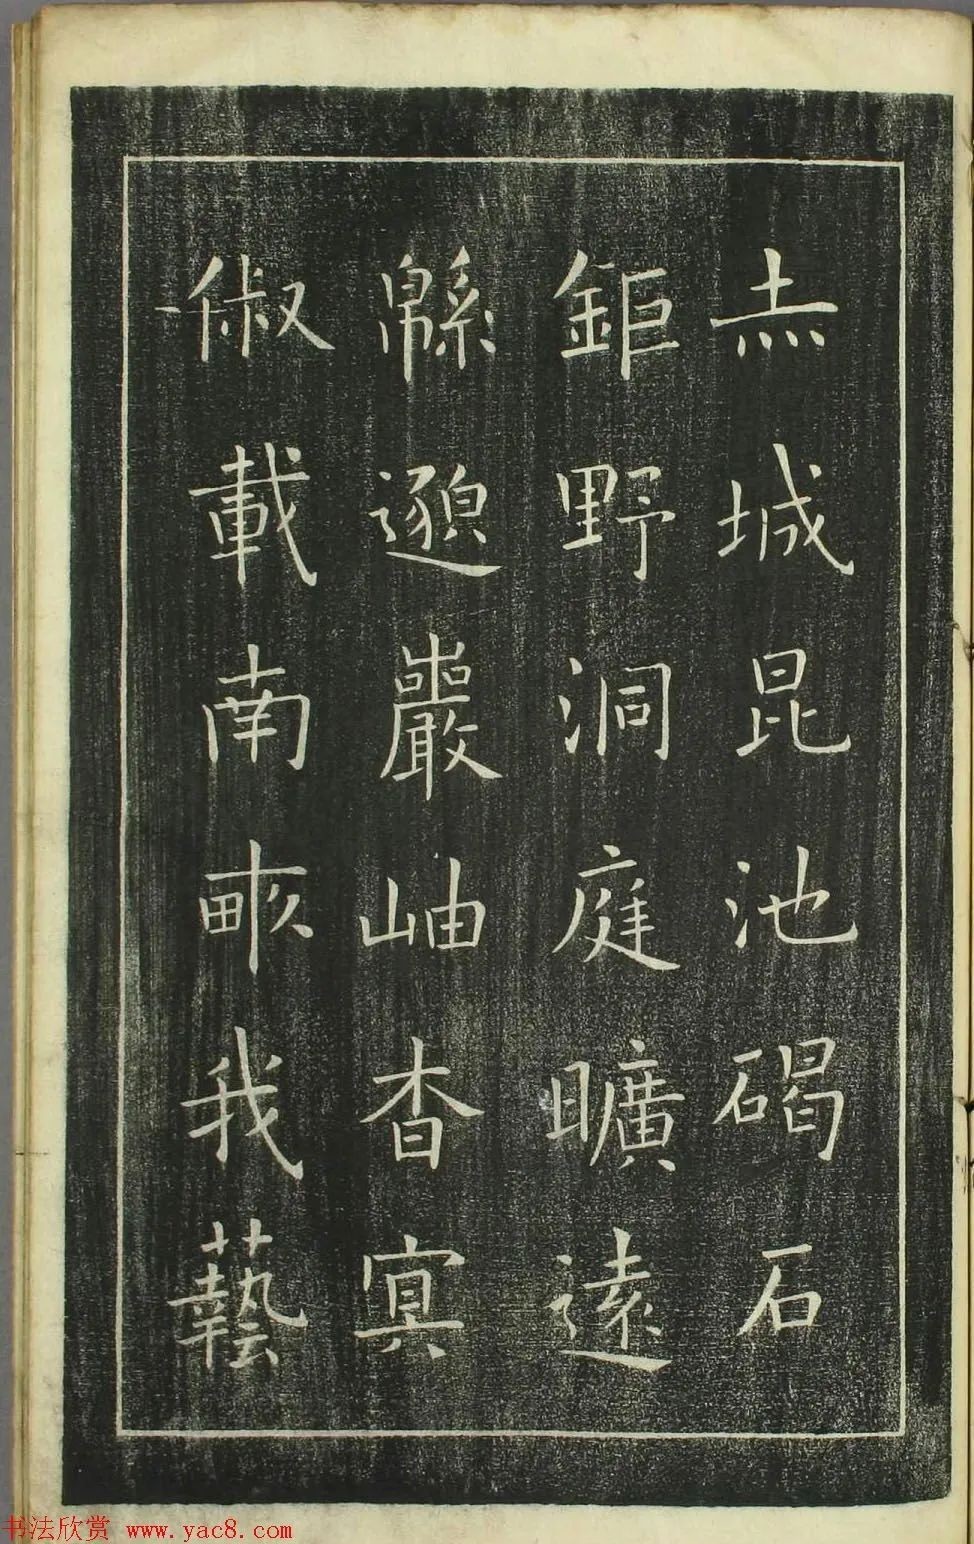 赤城昆池碣石
鉅野洞庭曠遠
緜邈巖岫杳冥
俶載南畝我藝
书法欣赏 www.yac8.com